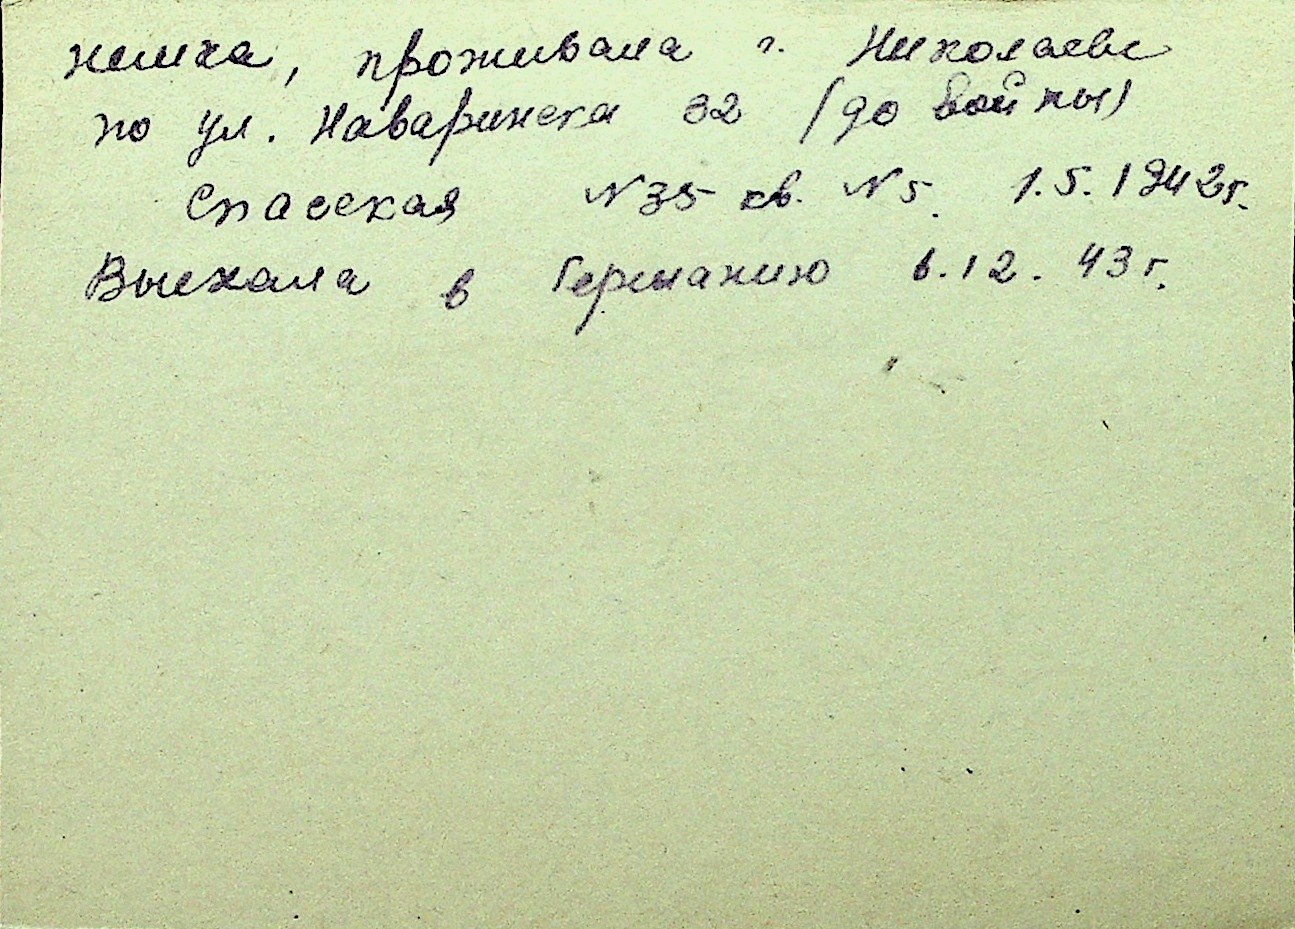 немка, проживала г. Николаеве
по ул. Наваринска 32 (до войны)
Спасская №35 кв. №5. 1.5.1942г.
Выехала в Германию 6.12.43г.